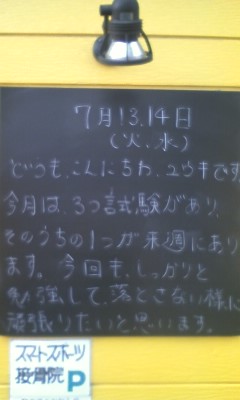 7月13.14日
(火.水)
どうも、こんにちわ、ユウキです。
今月は、3つ試験があり、
そのうちの1つが来週にあり
ます。今回も、しっかりと
勉強して、落とさない様に
頑張りたいと思います。
スマートスポーツ
接骨院 P